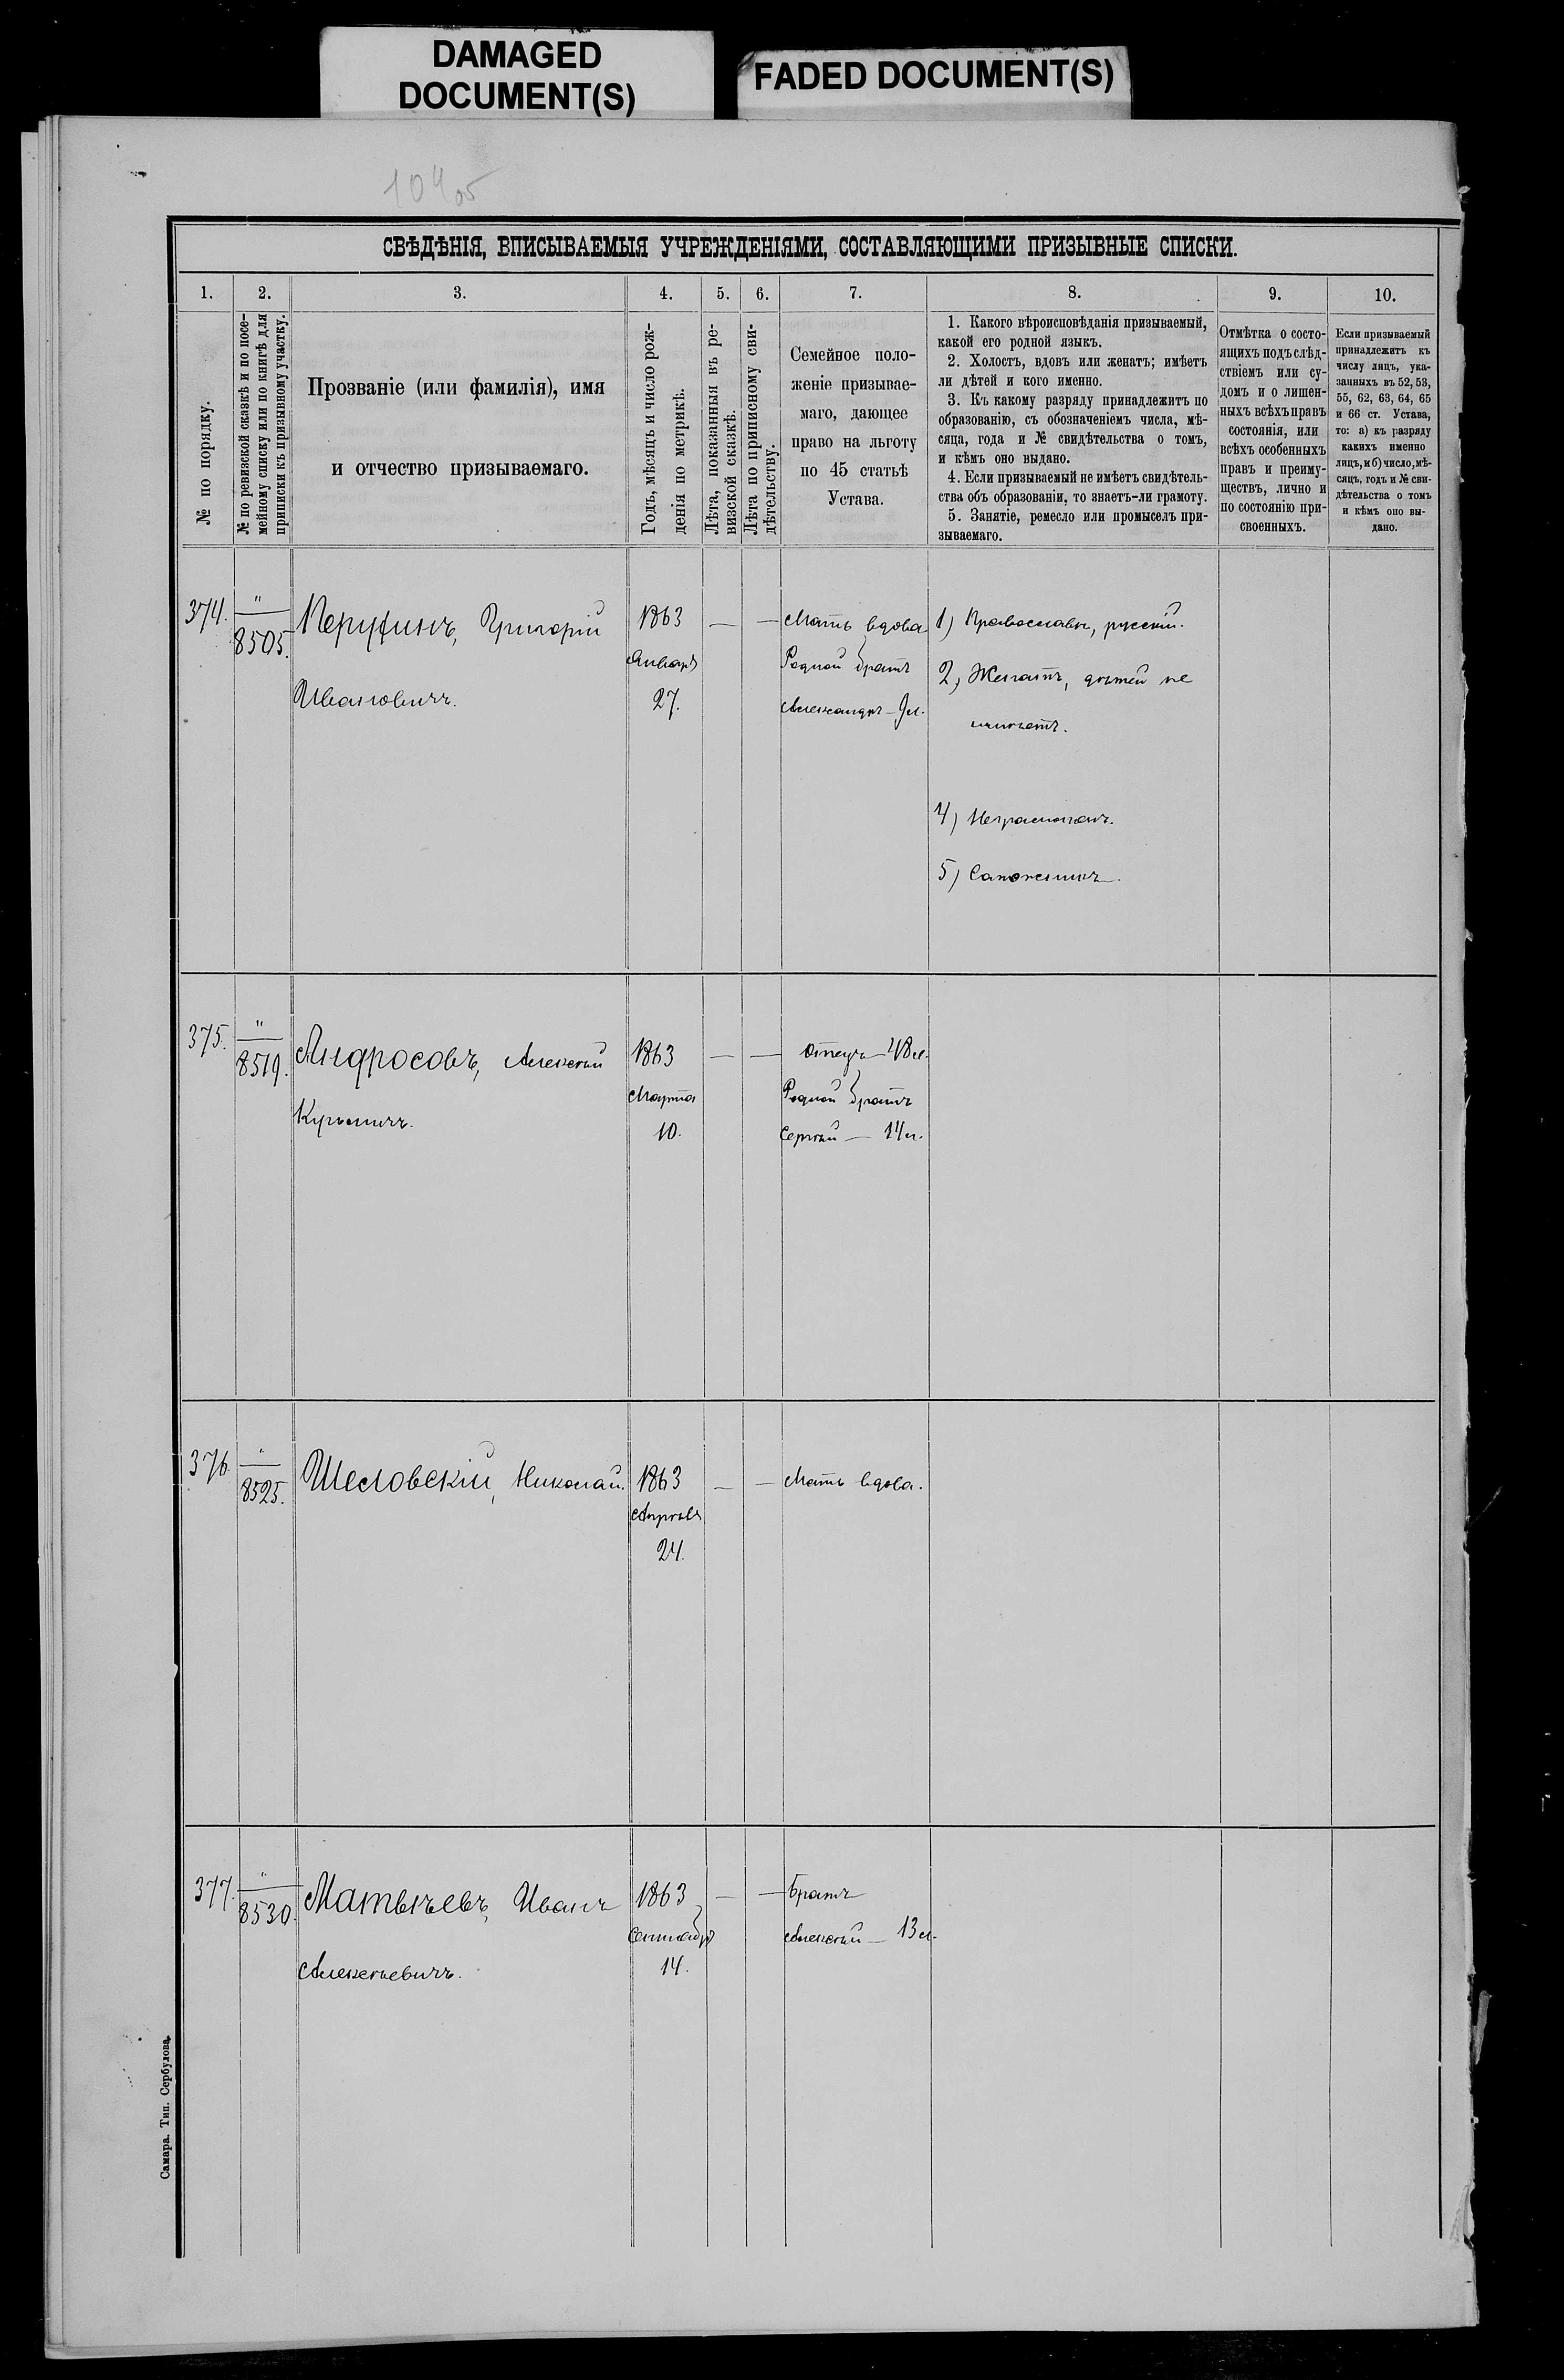 DAMAGED
DOCUMENT(S)
FADED DOCUMENT(S)
СВѢДѢНІЯ, ВПИСЫВАЕМЫЯ УЧРЕЖДЕНІЯМИ, СОСТАВЛЯЮЩИМИ ПРИЗЫВНЫЕ СПИСКИ.
1. 2. 3. 4. 5. 6. 7. 8. 9. 10.
№ по порядку.
№ по ревизской сказкѣ и по посе-
мейному списку или по книгѣ для
приписки къ призывному участку.
Прозваніе (или фамилія), имя
и отчество призываемаго.
Годъ, мѣсяцъ и число рож-
денія по метрикѣ.
Лѣта, показанныя въ ре-
визской сказкѣ.
Лѣта по приписному сви-
дѣтельству.
Семейное поло-
женіе призывае-
маго, дающее
право на льготу
по 45 статьѣ
Устава.
1. Какого вѣроисповѣданія призываемый,
какой его родной языкъ.
2. Холостъ, вдовъ или женатъ; имѣетъ
ли дѣтей и кого именно.
3. Къ какому разряду принадлежитъ по
образованію, съ обозначеніемъ числа, мѣ-
сяца, года и № свидѣтельства о томъ,
и кѣмъ оно выдано.
4. Если призываемый не имѣетъ свидѣтель-
ства объ образованіи, то знаетъ-ли грамоту.
5. Занятіе, ремесло или промыселъ при-
зываемаго.
Отмѣтка о состо-
ящихъ подъ слѣд-
ствіемъ или су-
домъ и о лишен-
ныхъ всѣхъ правъ
состоянія, или
всѣхъ особенныхъ
правъ и преиму-
ществъ, лично и
по состоянію при-
своенныхъ.
Если призываемый
принадлежитъ къ
числу лицъ, ука-
занныхъ въ 52, 53,
55, 62, 63, 64, 65
и 66 ст. Устава,
то: а) къ разряду
какихъ именно
лицъ, и б) число, мѣ-
сяцъ, годъ и № сви-
дѣтельства о томъ
и кѣмъ оно вы-
дано.
374. " 8505. Григорій
Ивановичъ.
1863
Январь
27.
— —
Мать вдова
Родной братъ
Александръ — 9 л.
1) Православн, русскій.
2) Женатъ, дѣтей не
имѣетъ.
4) Неграмотенъ.
5) Сапожникъ.
375. " 8519. Андросовъ, Алексѣй
Кузьмичъ.
1863
Марта
10.
— —
Отецъ — 48 л.
Родной братъ
Сергѣй — 14 л.
376. " 8525. Шесловскій, Николай.
1863
Апрѣль
24.
— —
Мать вдова.
377. " 8530. Матвѣевъ, Иванъ
Алексѣевичъ.
1863
Сентябр
14.
— —
Братъ
Алексѣй — 13 л.
Самара. Тип. Сербулова.